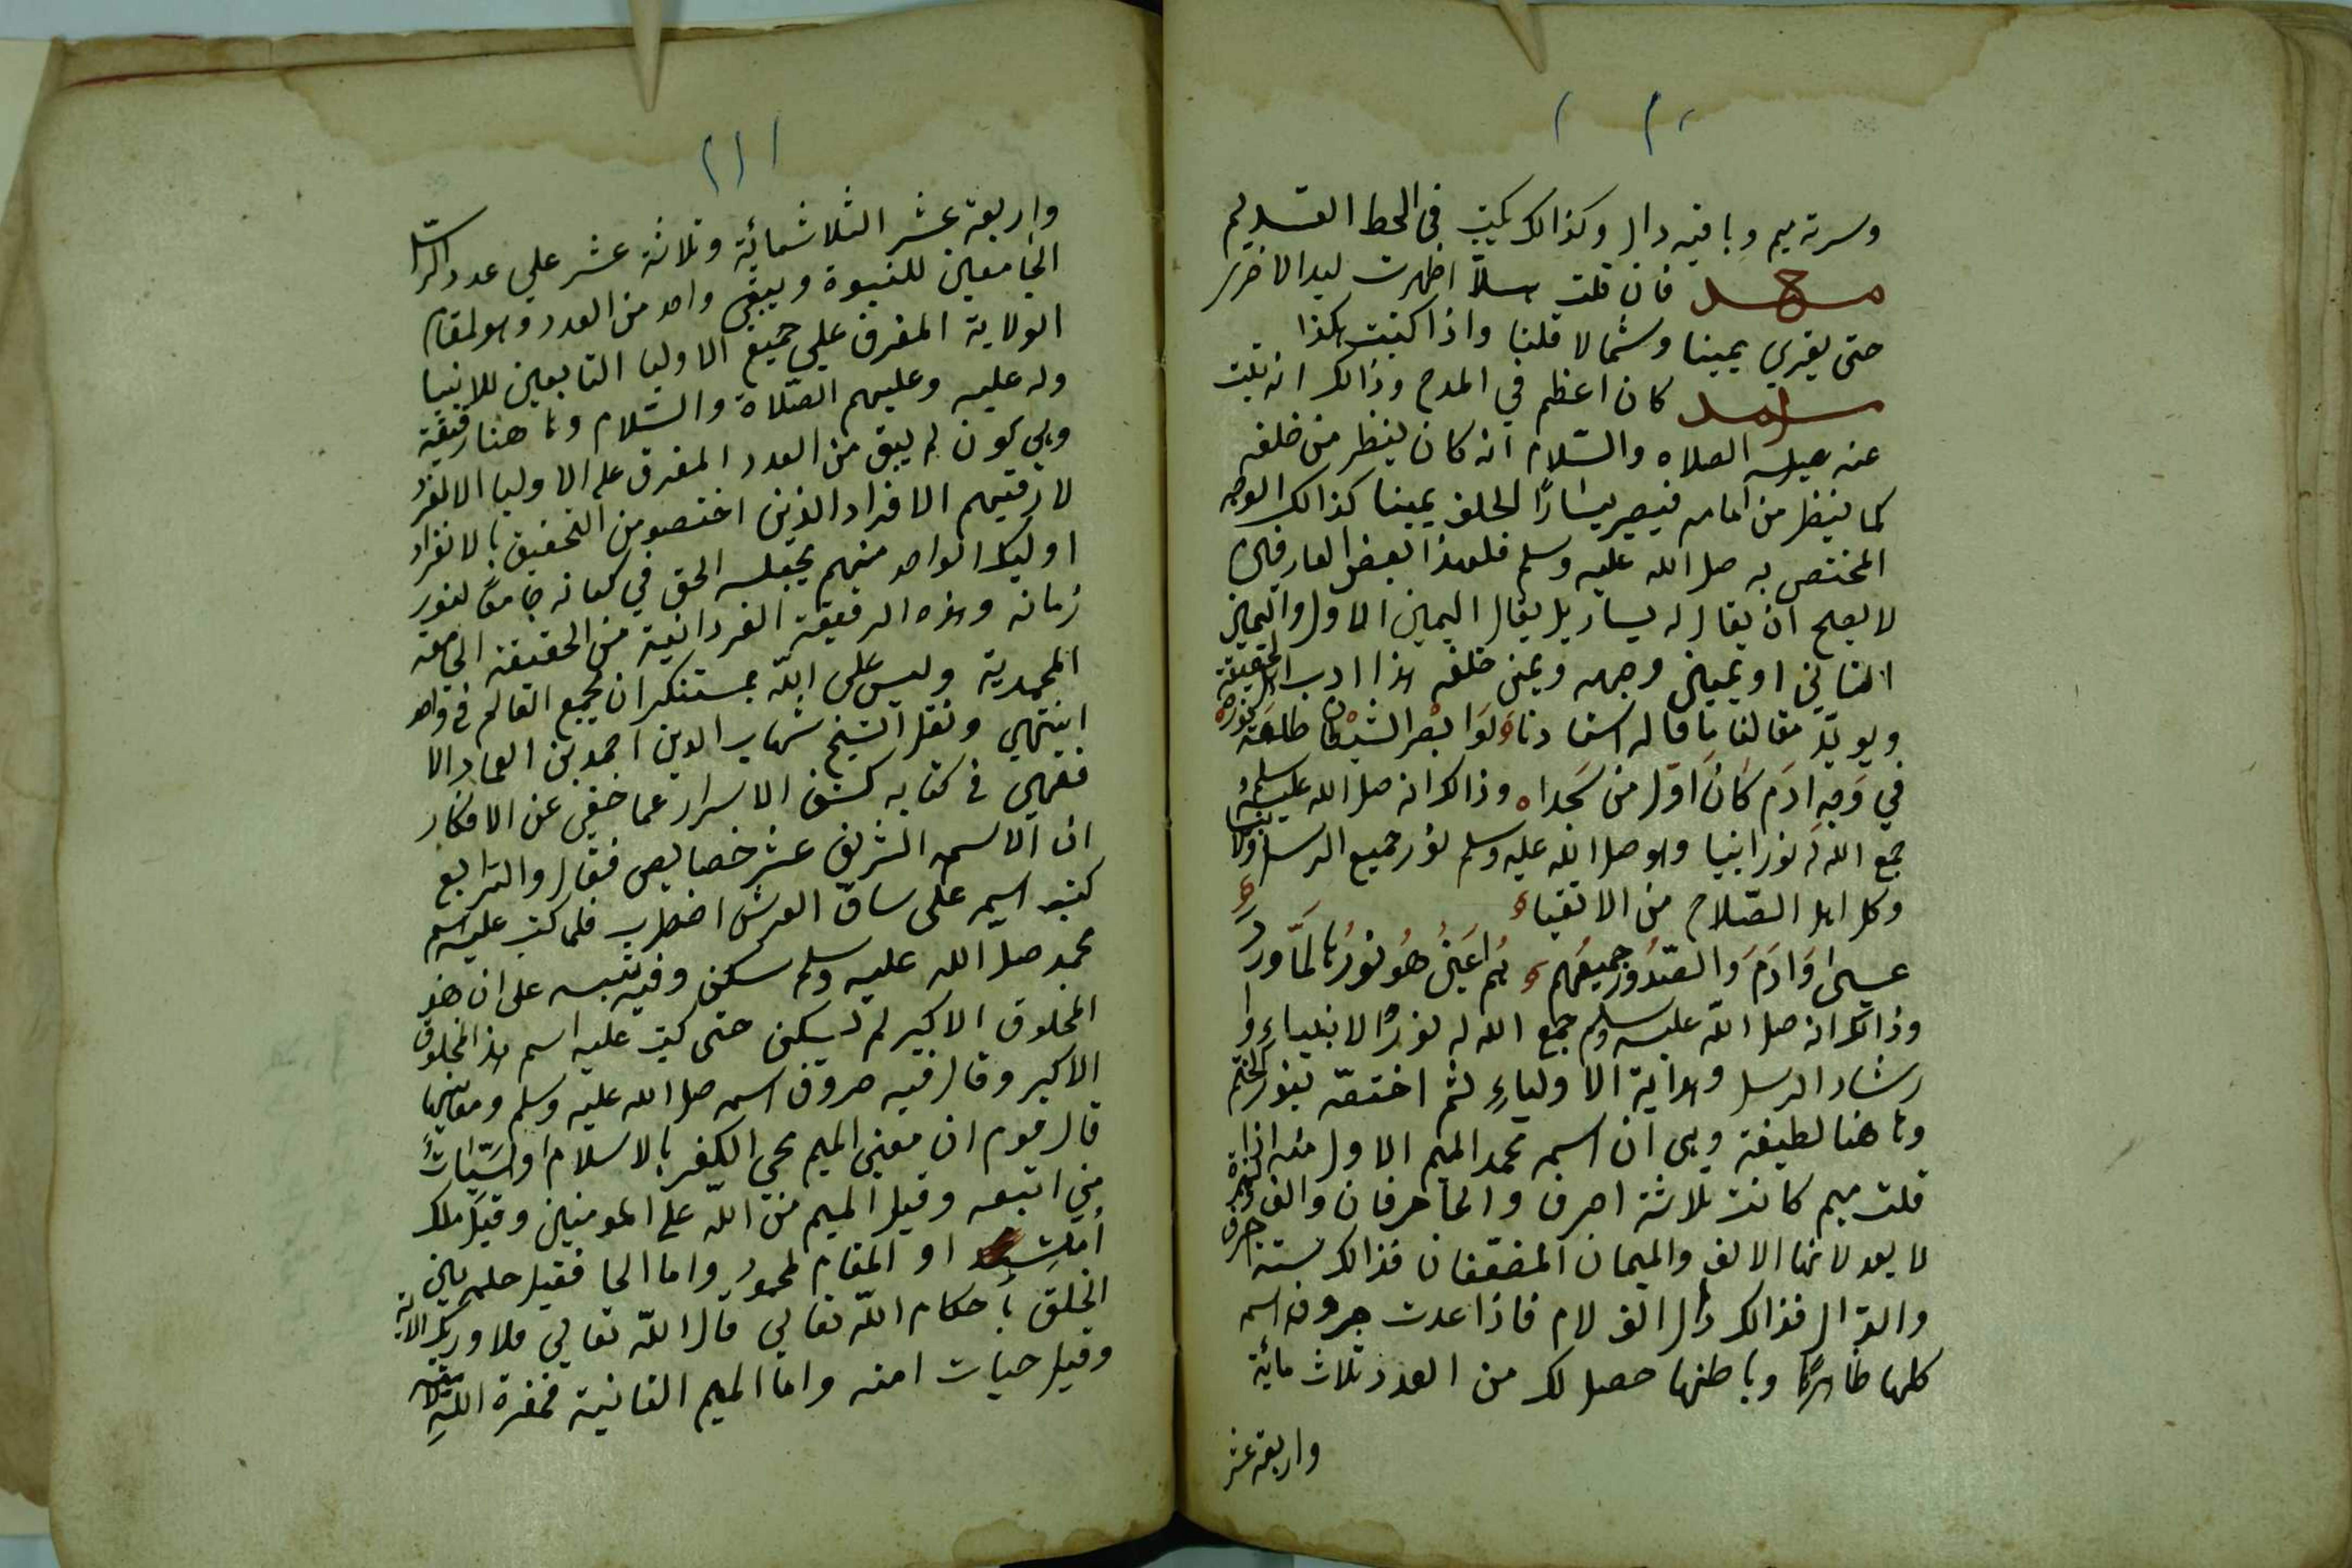 وسرته ميم وباقيه دال وكذالك يكتب في الخط القديم
محمد فان قلت هلا اظهرت ليد الاخرى
حتى يقري يمينا وشمالا قلنا واذا كتبت هكذا
كان اعظم في المدح وذالك انه ثبت
عنه عليه الصلاه والسّلام انه كان ينظر من خلفه
كما ينظر من امامه فيصير يسارًا لخلف يمينا كذالك الوجه
المختص به صل الله عليه وسلم فلهذا بعض العارفين
لا يصح ان يقال له يسار بل يقال اليمين الاول واليمين
الثاني او يمين وجهه ويمين خلفه هذا ادب الحقيقة
ويويّد مقالنا ما قاله استادنا ولوابصر الشيطان طلعة نوره
في وجه ادم كان اوّل من سجدا وذالك انه صل الله عليه وسلم
جمع الله له نور انبيا وهو صل الله عليه وسلم نور جميع الرسل
وكل اهل الصّلاح من الاتقياء
عيسى وادم والصّدور جميعهم هم اعين هو نورها لمّا ورد
وذالك انه صل الله عليه وسلم جمع الله له نور الانبياء وا
رشاد الرسل وهداية الاولياء ثم اختصّه بنور الختم
وها هنا لطيفة وهي ان اسمه محمد الميم الاول منه اذا
قلت ميم كانت ثلاثة احرف والحا حرفان والف
لا يعد لانها الالف والميمان المضعّفان فذالك ستة احرف
والدّال فذالك دال الف لام فاذا عدت حروف اسمه
كلها ظاهرها وباطنها حصل لك من العدد ثلاث مائة
واربعة عشر
واربعة عشر الثلاثمائة وثلاثة عشر علي عدد الرّسل
الجامعين للنبوة ويبقى واحد من العدد وهو لمقام
الولاية المفرق علي جميع الاوليا التابعين للانبيا
وله عليه وعليهم الصّلاة والسّلام وها هنا رقيقة
وهي كون لم يبق من العدد المفرق على الاوليا الا لفرد
لان فيهم الافراد الذين اختصو من التحقيق بالانفراد
اوليك الواحد منهم يجعله الحق في كمانه جامعًا لنور
زمانه وهذه الرقيقة الفردانية من الحقيقة الجامعة
المحمدية وليس على الله بمستنكر ان يجمع العالم في واحد
انتهي ونقل الشيخ شهاب الدين احمد بن العماد الا
قفهي في كتابه كشف الاسرار عما خفي عن الافكار
ان الاسمه الشريف عشر خصايص فقال والرّابع
كتب اسمه على ساق العرش اضطرب فلما كتب عليه اسم
محمد صل الله عليه وسلم سكن وفيه تنبيه على ان هذ
المخلوق الاكبر لم يسكن حتى كتب عليه اسم هذ المخلوق
الاكبر وقال فيه حروف اسمه صل الله عليه وسلم ومعانيها
قال قوم ان معنى الميم محي الكفر بالاسلام او سيّئات
من اتبعه وقيل الميم منّ اللّه على المومنين وقيل ملك
أمته او المقام المحمود واما الحا فقيل حلمه بين
الخلق بأحكام اللّه تعالي قال اللّه تعالي فلا وربك الاية
وقيل حيات امته واما الميم الثانية فمغفرة اللّه لامّته